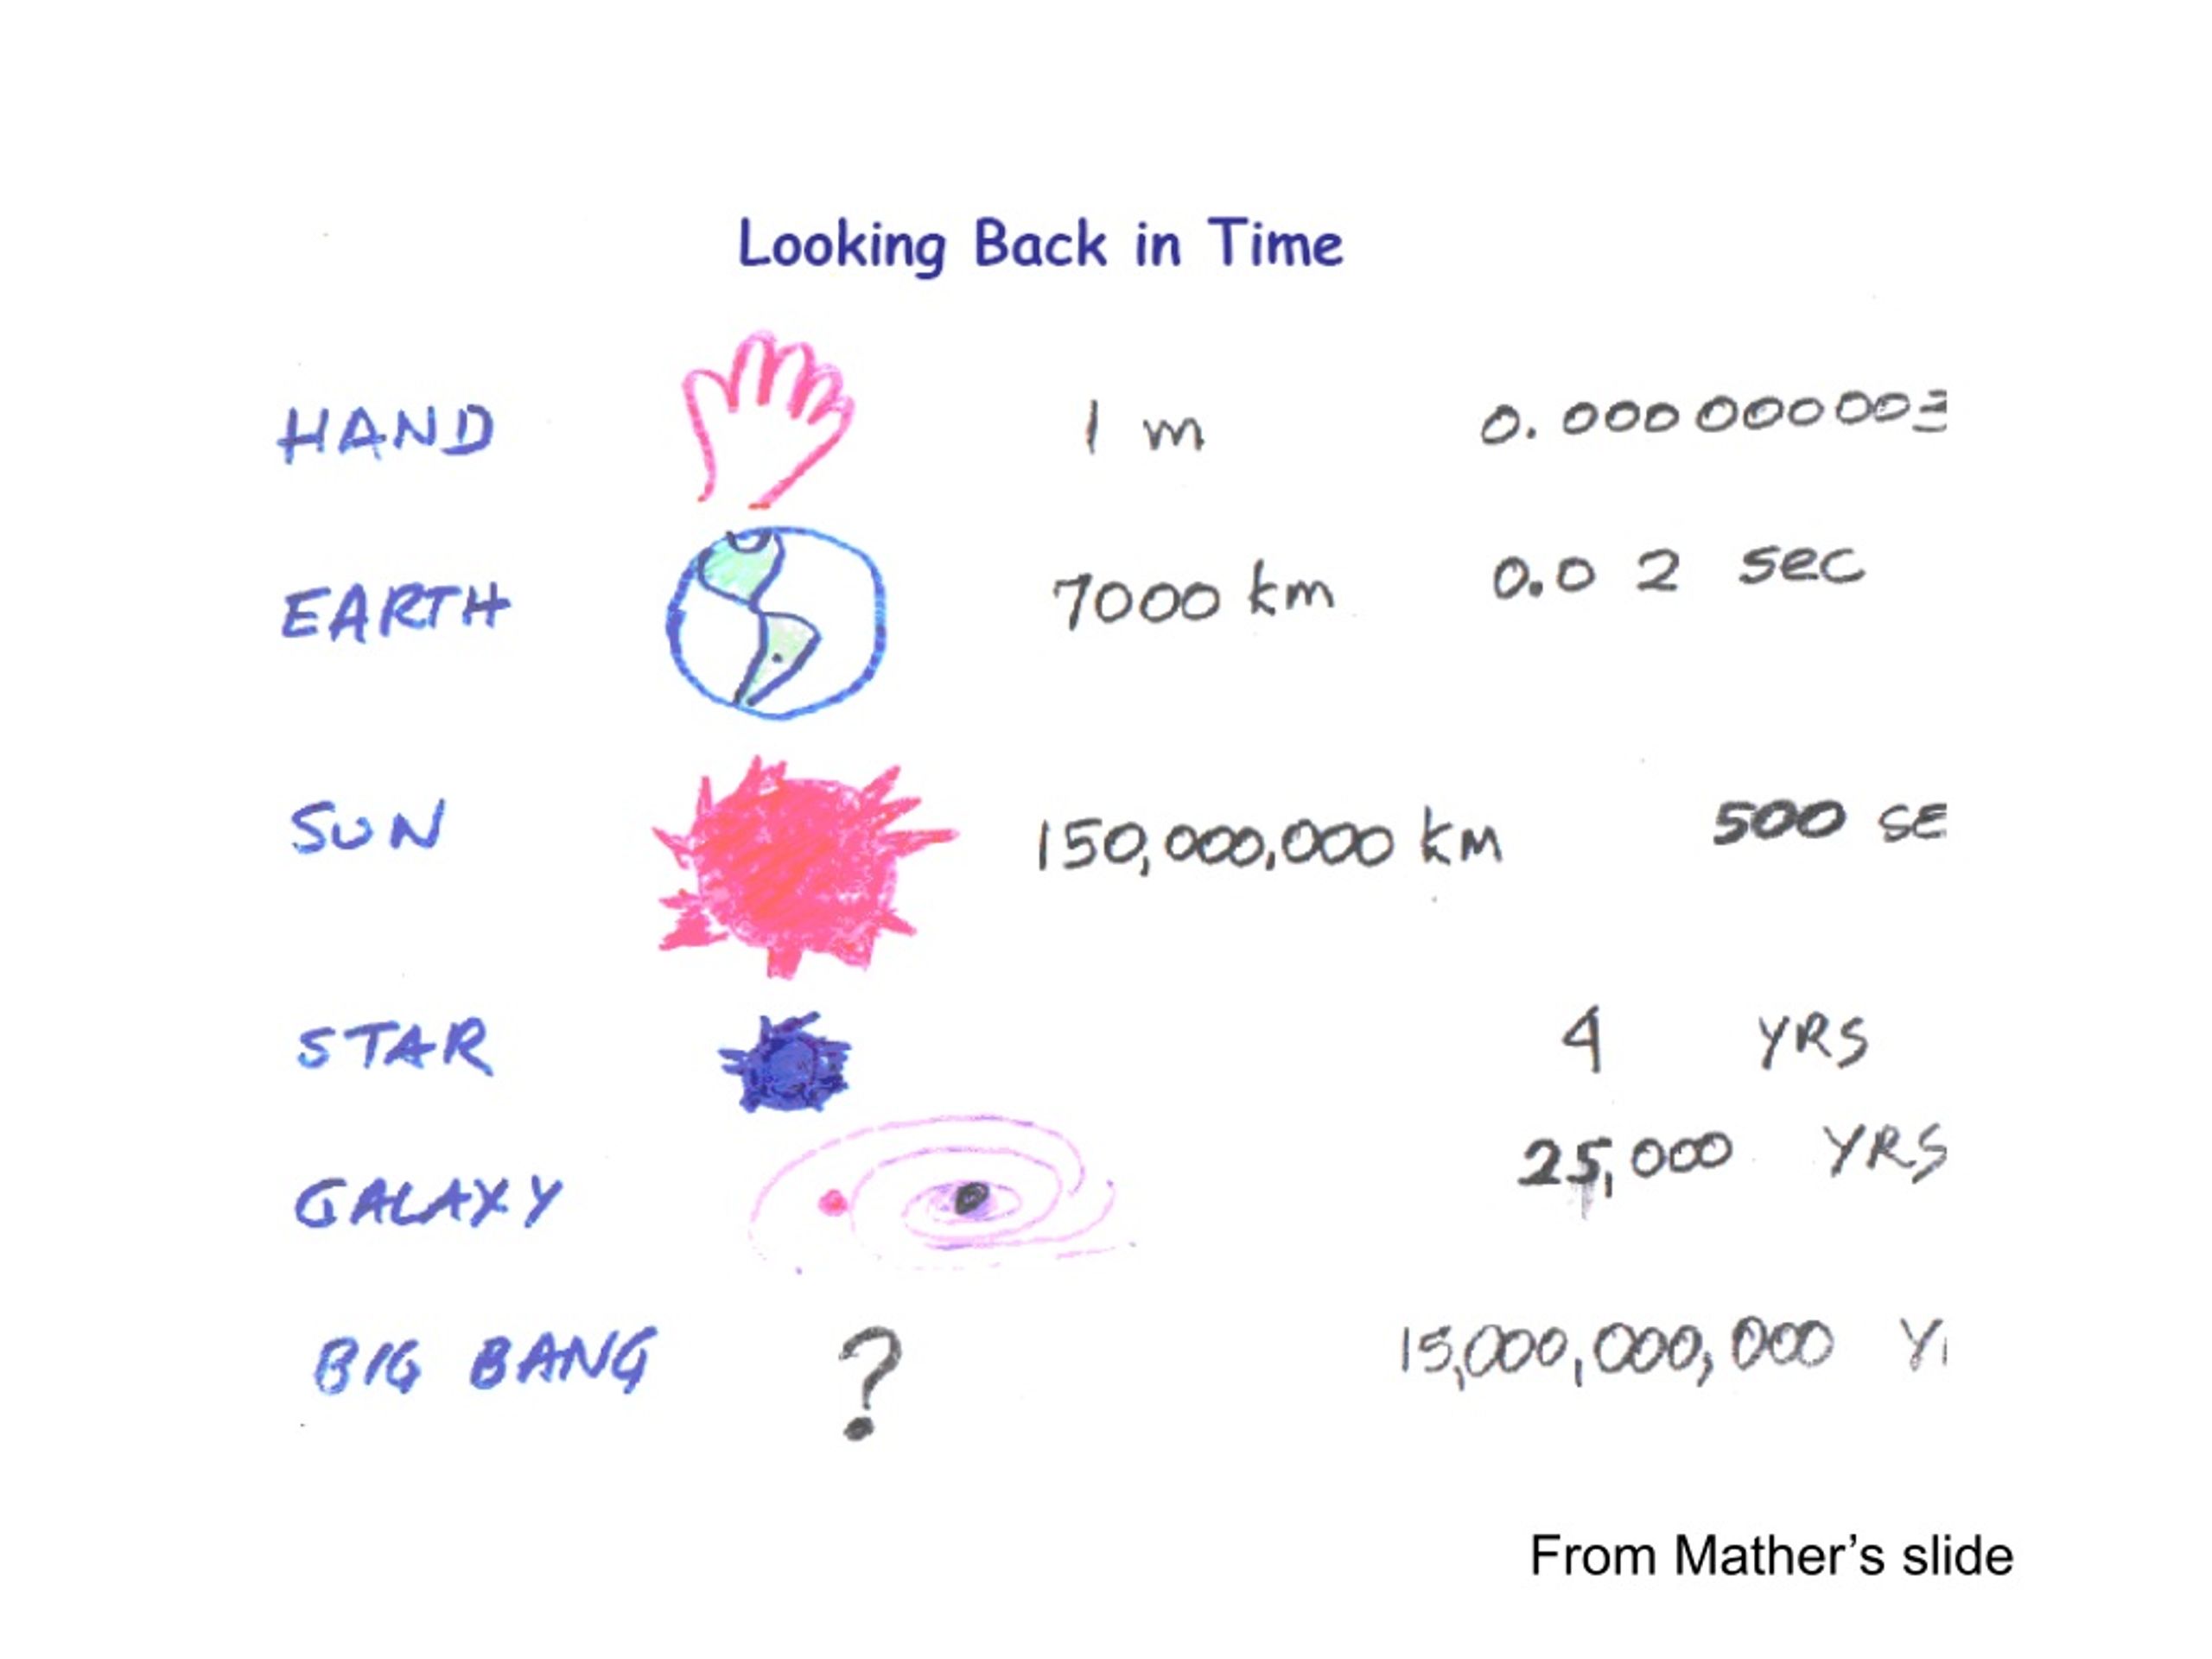 Looking Back in Time
HAND 1 m 0.000 000 003
EARTH 7000 km 0.0 2 sec
SUN 150,000,000 km 500 SE
STAR 4 YRS
GALAXY 25,000 YRS
BIG BANG ? 15,000,000,000 Y
From Mather's slide